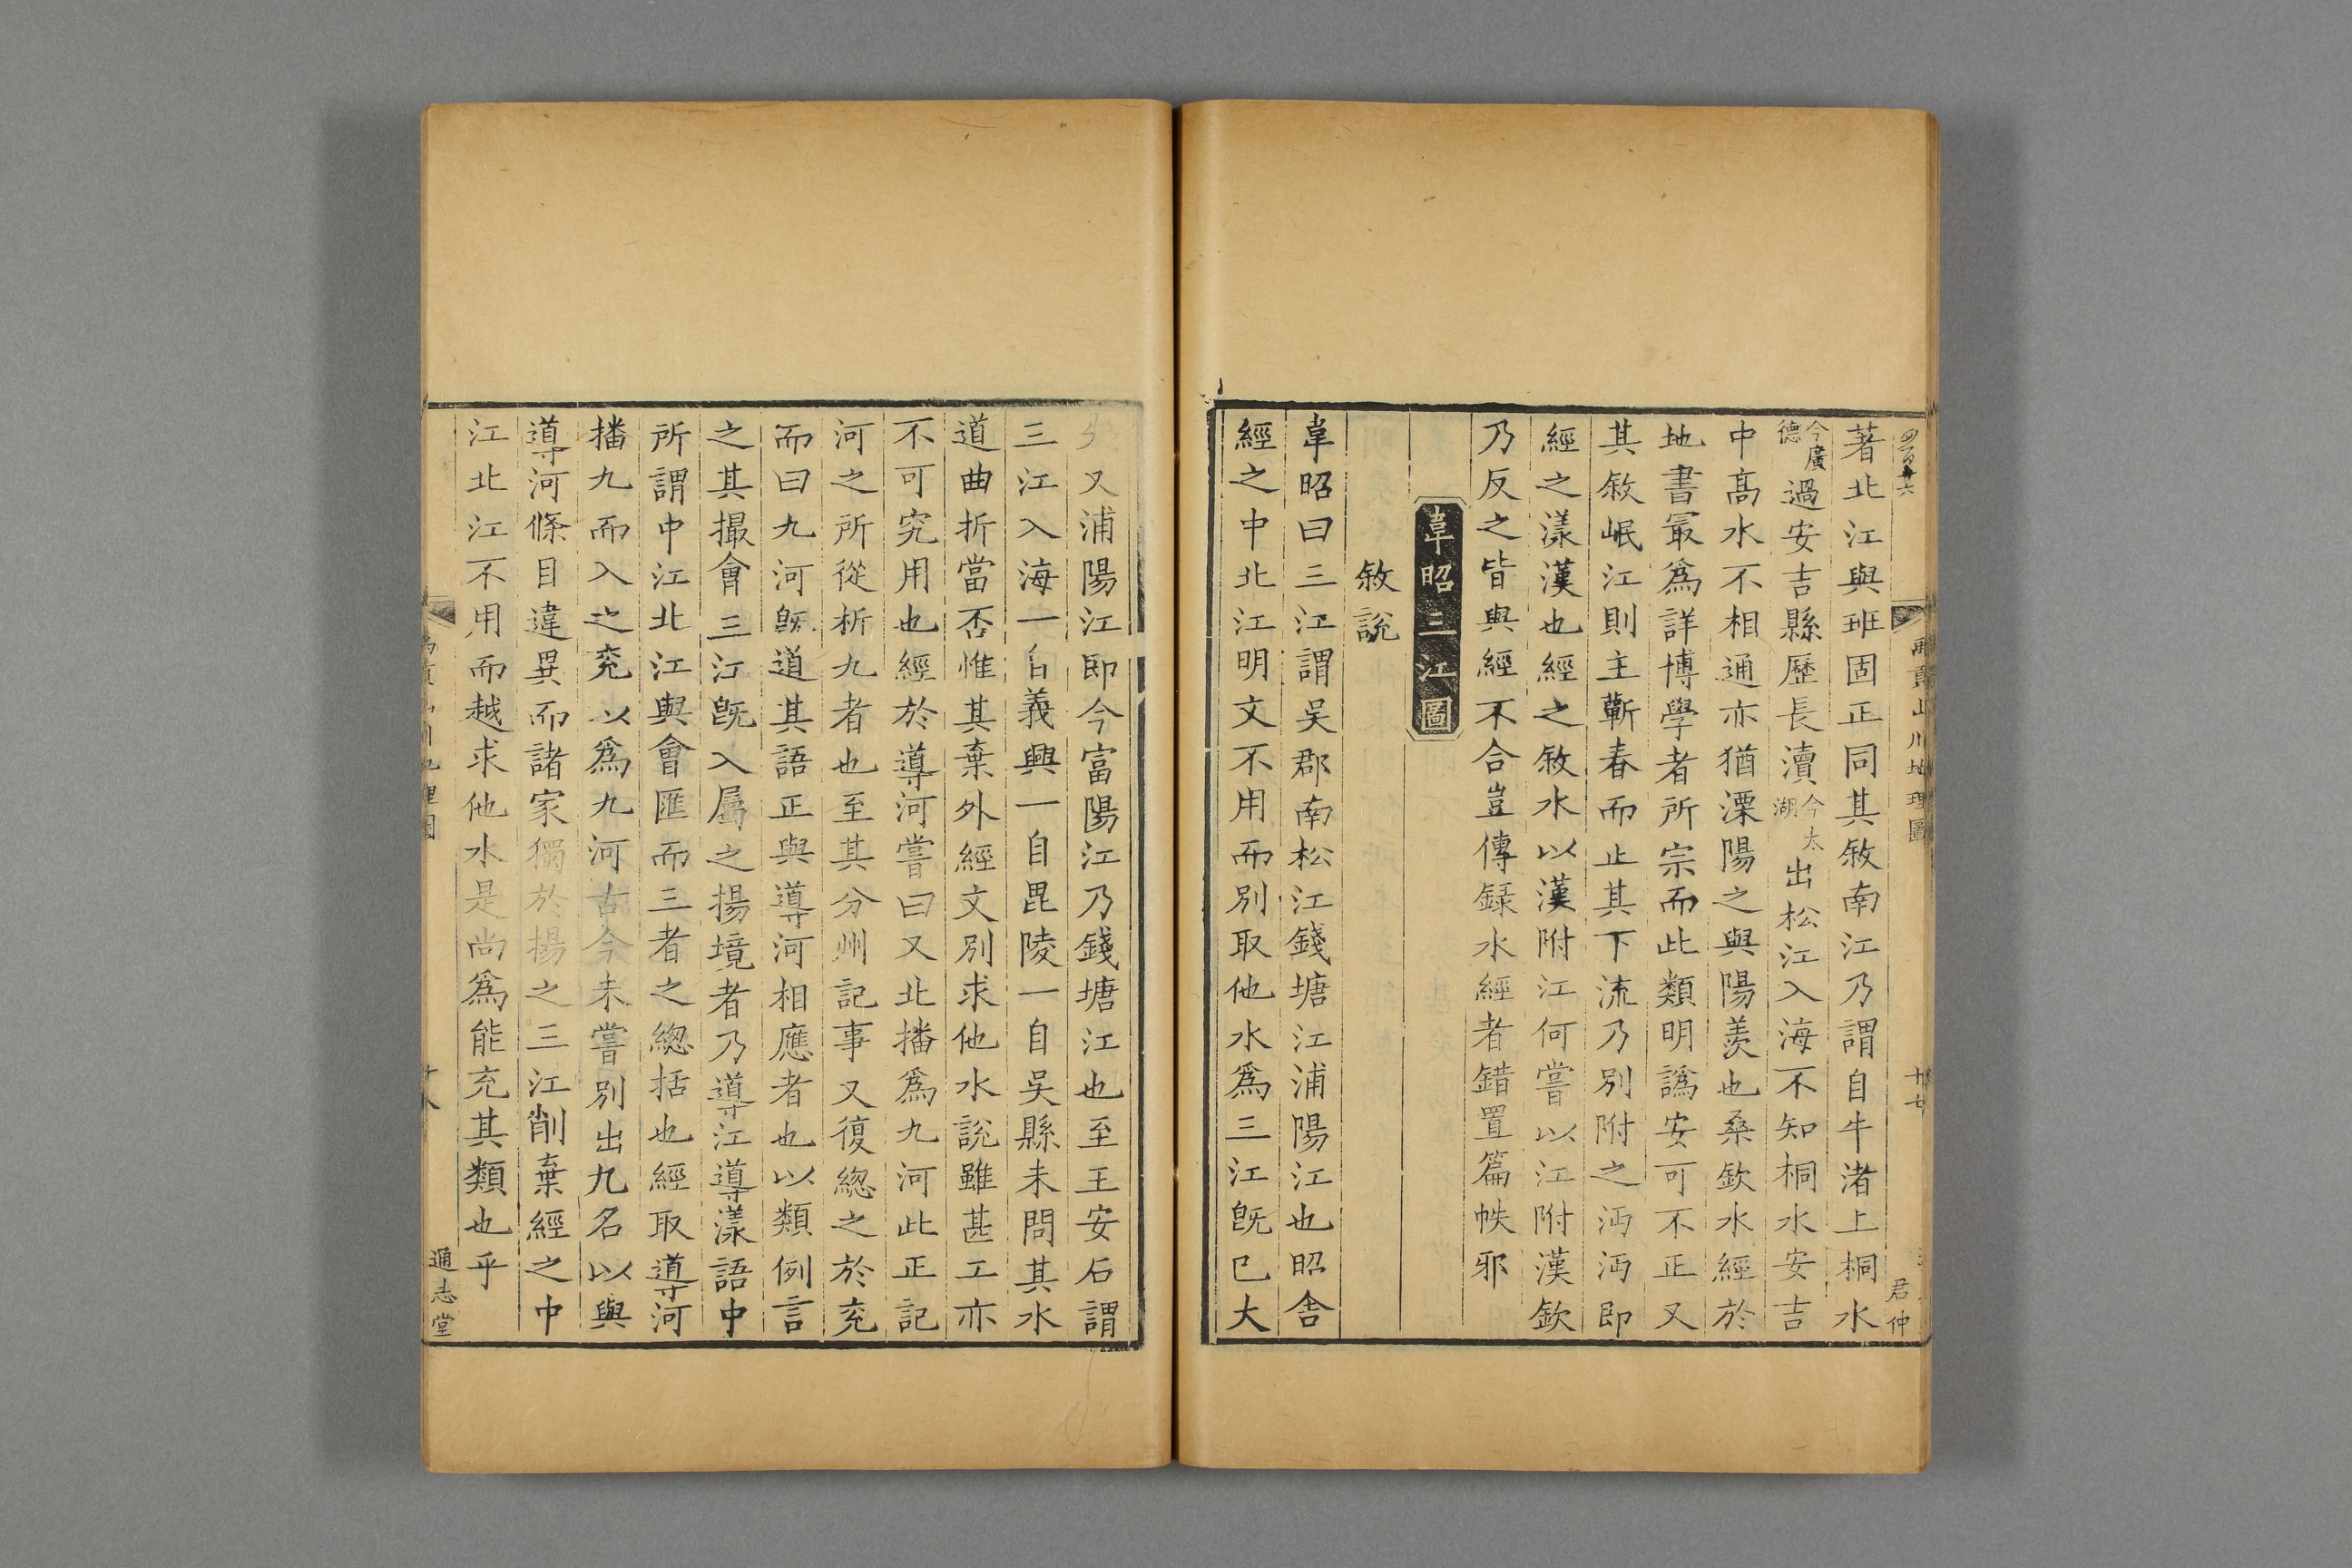 禹貢山川地理圖
廿七
君仲
著北江與班固正同其敘南江乃謂自牛渚上桐水
今廣德過安吉縣歷長瀆今太湖出松江入海不知桐水安吉
中高水不相通亦猶溧陽之與陽羡也桑欽水經於
地書冣爲詳博學者所宗而此類明譌安可不正又
其敘岷江則主蘄春而止其下流乃別附之沔沔即
經之漾漢也經之敘水以漢附江何嘗以江附漢欽
乃反之皆與經不合豈傳録水經者錯置篇帙邪
韋昭三江圖
敘說
韋昭曰三江謂吴郡南松江錢塘江浦陽江也昭舍
經之中北江明文不用而別取他水爲三江旣已大
又浦陽江即今富陽江乃錢塘江也至王安石謂
三江入海一自義興一自毘陵一自吴縣未問其水
道曲折當否惟其棄外經文別求他水說雖甚工亦
不可究用也經於導河嘗曰又北播爲九河此正記
河之所從析九者也至其分州記事又復緫之於兖
而曰九河旣道其語正與導河相應者也以類例言
之其撮會三江旣入屬之揚境者乃導江導漾語中
所謂中江北江與會匯而三者之緫括也經取導河
播九而入之兖以爲九河古今未嘗別出九名以與
導河條目違異而諸家獨於揚之三江削棄經之中
江北江不用而越求他水是尚爲能充其類也乎
通志堂